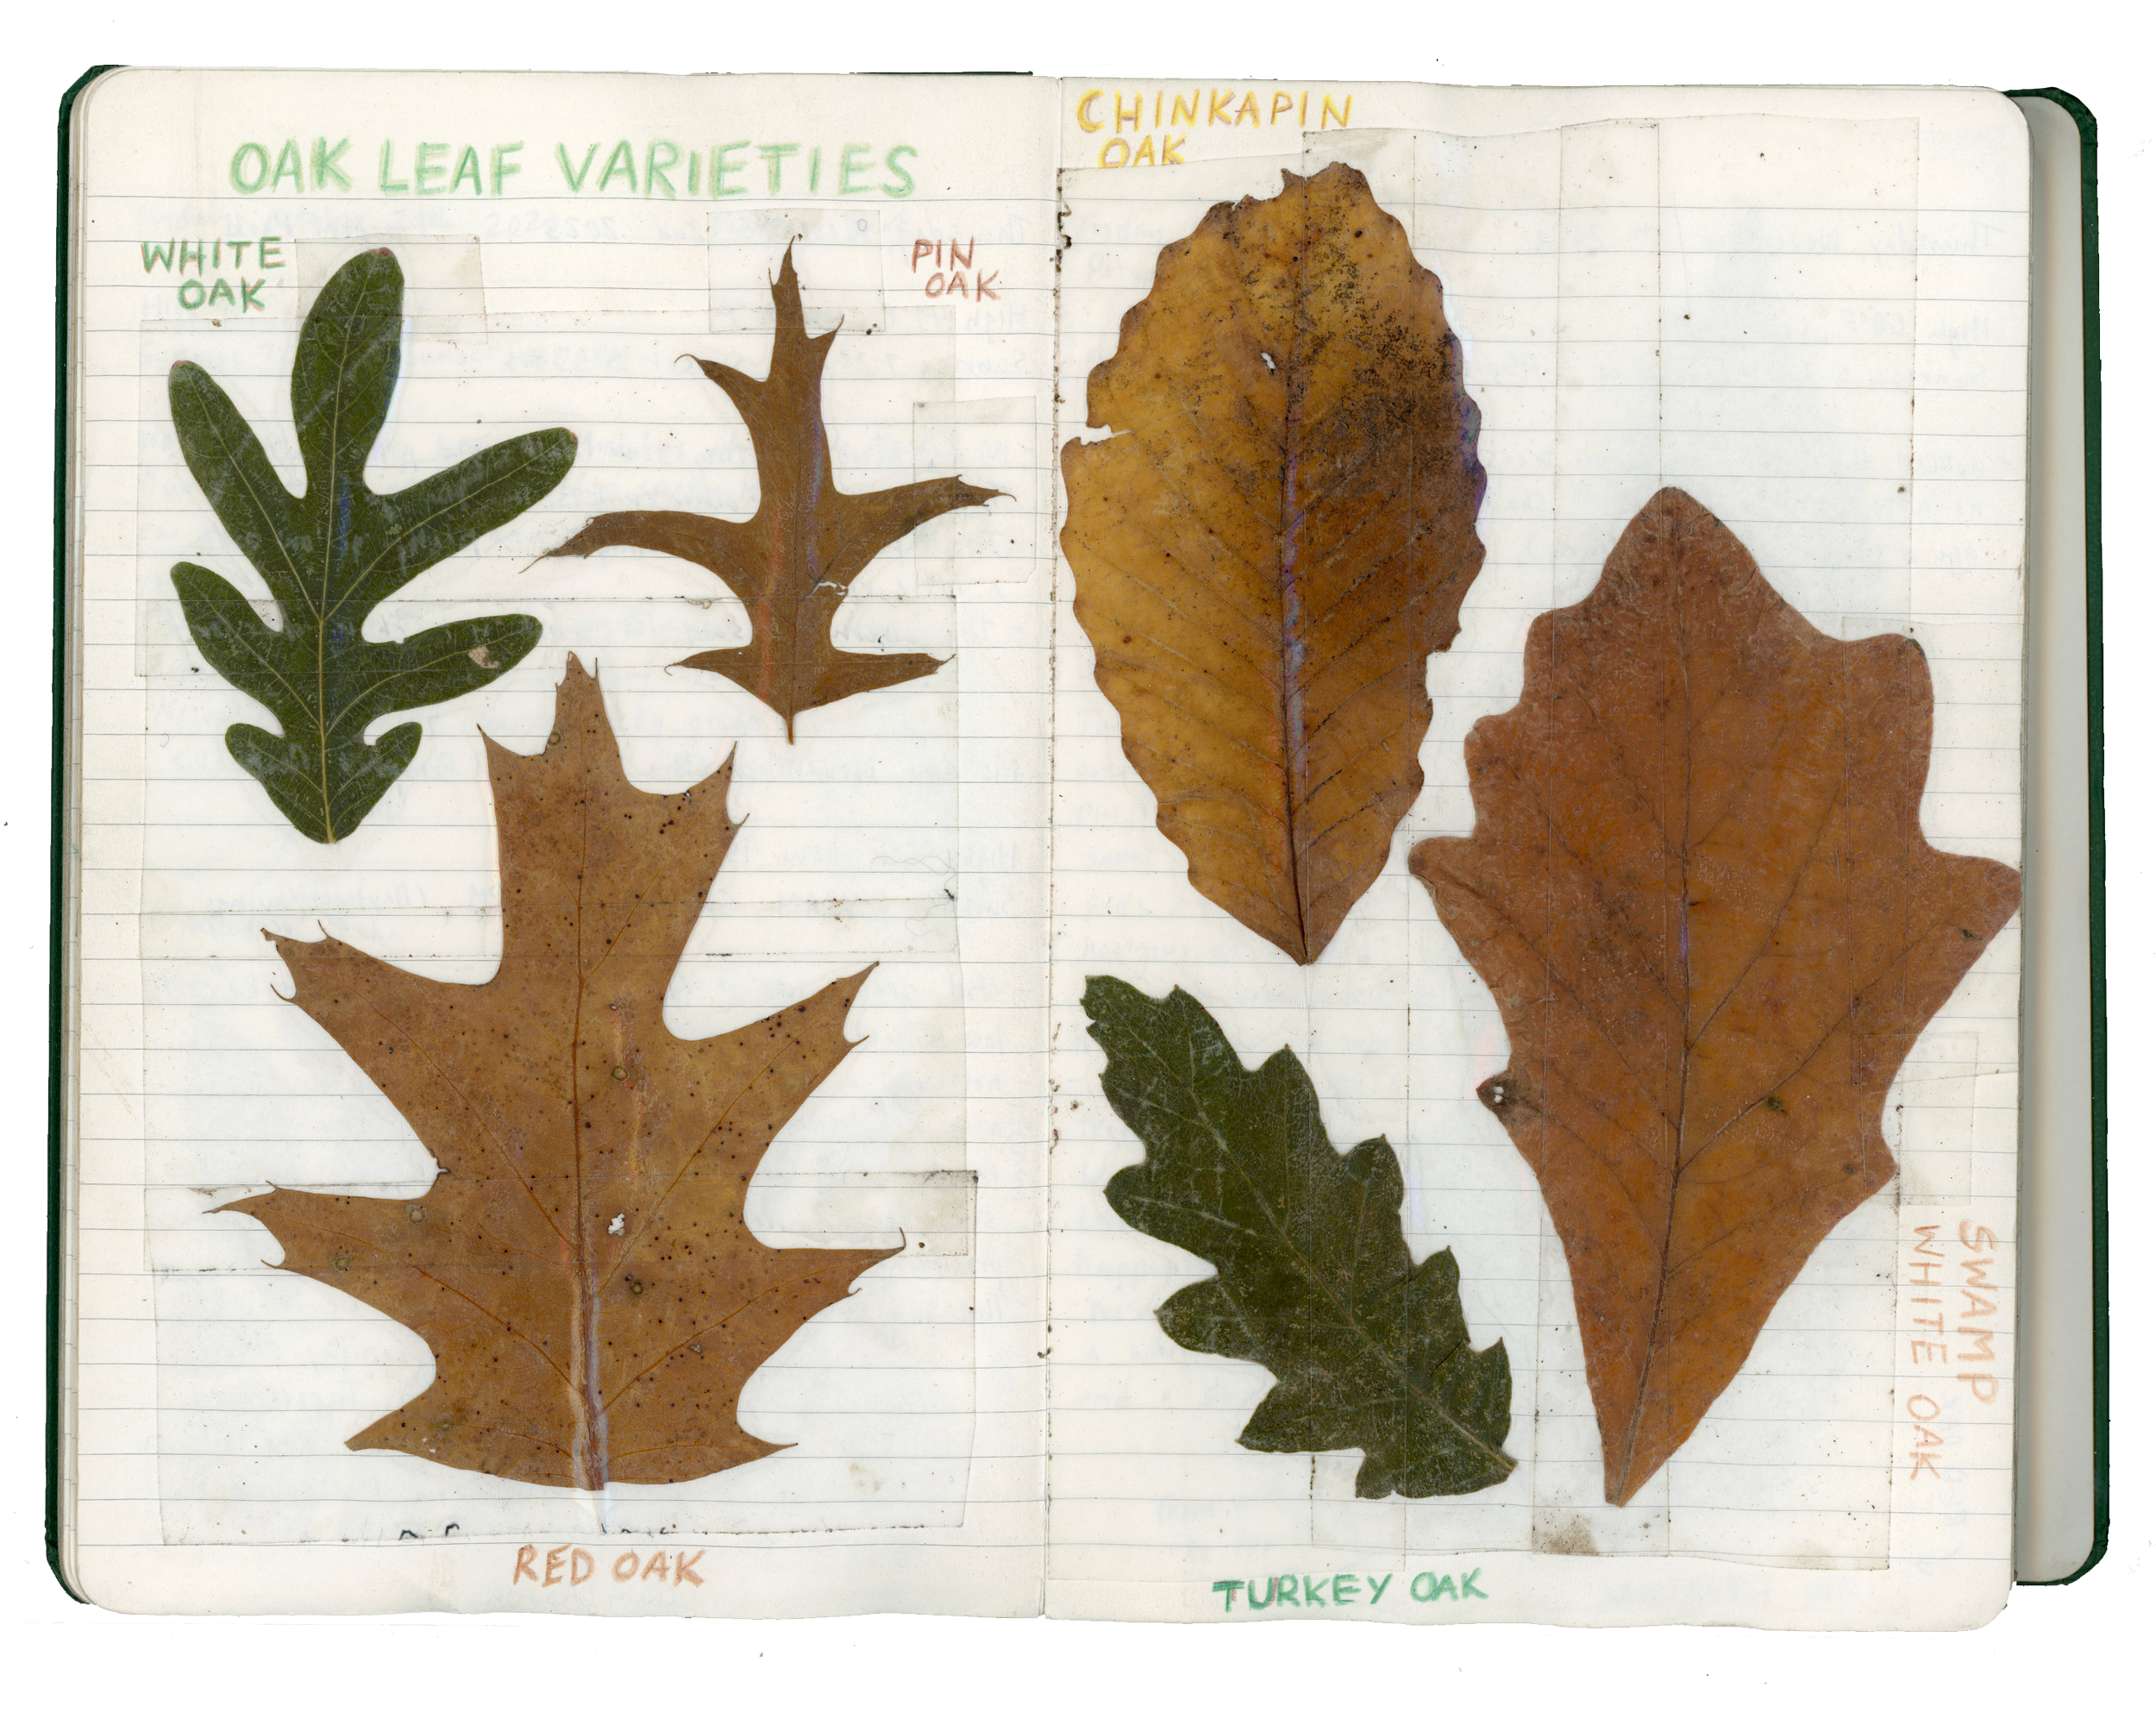 OAK LEAF VARIETIES
WHITE
OAK
PIN
OAK
RED OAK
CHINKAPIN
OAK
SWAMP
WHITE OAK
TURKEY OAK